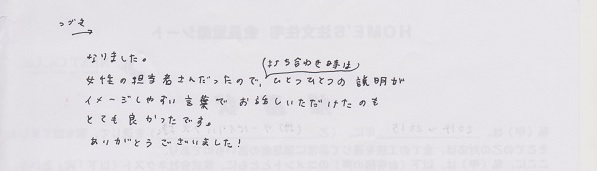 つづき
なりました。
(打ち合わせ時は)
女性の担当者さんだったので、ひとつひとつの説明が
イメージしやすい言葉でお話しいただけたのも
とても良かったです。
ありがとうございました!